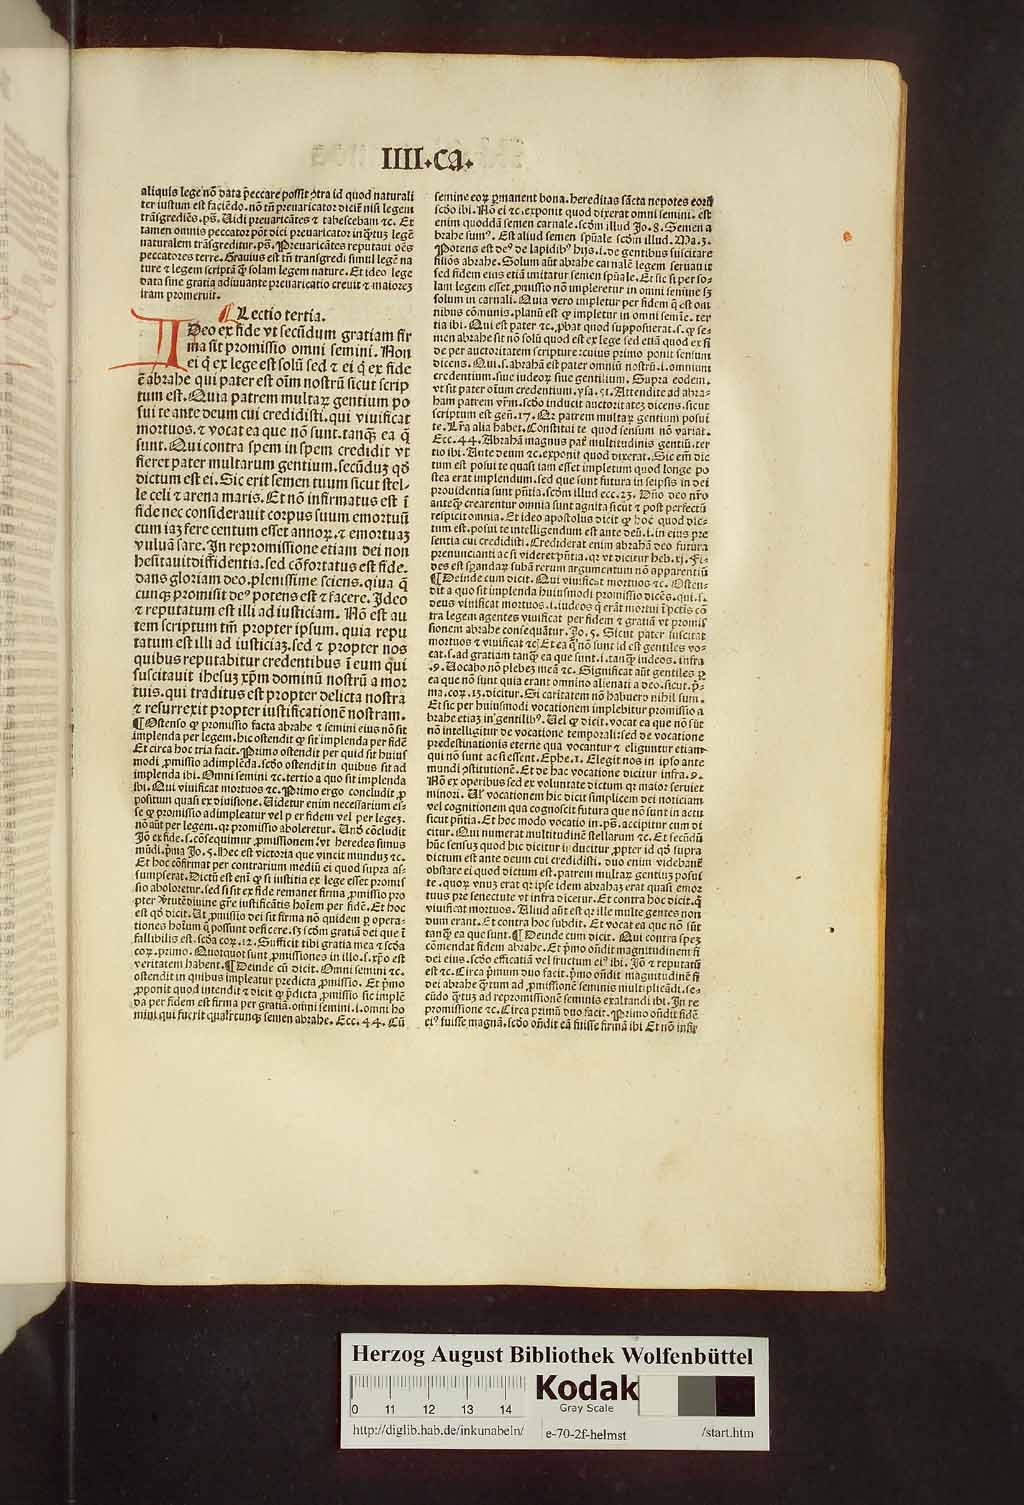 IIII.ca.
aliquis lege nō data peccare possit ꝯtra id quod naturali
ter iustum est faciēdo. nō tn̄ preuaricator dicit᷑ nisi legem
trāsgrediēs. ps̄. Uidi preuaricātes ⁊ tabescebam ⁊c. Et
tamen omnis peccator pōt dici preuaricator inqͣtuꝫ legē
naturalem trāsgreditur. ps̄. Preuaricātes reputaui oēs
peccatores terre. Grauius est tn̄ transgredi simul legē na
ture ⁊ legem scriptā qͣꝫ solam legem nature. Et ideo lege
data sine gratia adiuuante preuaricatio creuit ⁊ maioreꝫ
iram promeruit.
Lectio tertia.
IDeo ex fide vt secūdum gratiam fir
ma sit promissio omni semini. Non
ei q̄ ex lege est solū sed ⁊ ei q̄ ex fide
ē abrahe qui pater est oīm nostrū sicut scrip
tum est. Quia patrem multaꝝ gentium po
sui te ante deum cui credidisti. qui viuificat
mortuos. ⁊ vocat ea que nō sunt. tanqͣꝫ ea q̄
sunt. Qui contra spem in spem credidit vt
fieret pater multarum gentium. secūduꝫ qd̄
dictum est ei. Sic erit semen tuum sicut stel-
le celi ⁊ arena maris. Et nō infirmatus est ī
fide nec considerauit corpus suum emortuū
cum iaꝫ fere centum esset annoꝝ. ⁊ emortuaꝫ
vuluā sare. In repromissione etiam dei non
hesitauit diffidentia. sed cōfortatus est fide.
dans gloriam deo. plenissime sciens. qiua q̄
cunqꝫ promisit deꝰ potens est ⁊ facere. Ideo
⁊ reputatum est illi ad iusticiam. Nō est au
tem scriptum tm̄ propter ipsum. quia repu
tatum est illi ad iusticiaꝫ. sed ⁊ propter nos
quibus reputabitur credentibus ī eum qui
suscitauit ihesuꝫ xp̄m dominū nostrū a mor
tuis. qui traditus est propter delicta nostra
⁊ resurrexit propter iustificationē nostram.
¶ Ostenso ꝙ promissio facta abrahe ⁊ semini eius nō sit
implenda per legem. hic ostendit ꝙ sit implenda per fidē
Et circa hoc tria facit. Primo ostendit per quid sit huius
modi ꝓmissio adimplēda. scd̄o ostendit in quibus sit ad
implenda ibi. Omni semini ⁊c. tertio a quo sit implenda
ibi. Qui viuificat mortuos ⁊c. Primo ergo concludit ꝓ
positum quasi ex diuisione. Uidetur enim necessarium es-
se ꝙ promissio adimpleatur vel per fidem vel per legeꝫ.
nō aūt per legem. qꝛ promissio aboleretur. Unde cōcludit
Iō ex fide. s. cōsequimur ꝓmissionem. vt heredes simus
mūdi. ṗma Jo. 5. Hec est victoria que vincit munduꝫ ⁊c.
Et hoc cōfirmat per contrarium mediū ei quod supra as-
sumpserat. Dictū est enī ꝙ si iustitia ex lege esset promis
sio aboleretur. sed si sit ex fide remanet firma ꝓmissio pro
pter ṽtutē diuine grē iustificātis hoīem per fidē. Et hoc
est qd̄ dicit. Ut ꝓmissio dei sit firma nō quidem ꝑ opera-
tiones hoīum q̄ possunt deficere. sꝫ scd̄m gratiā dei que ī
fallibilis est. scd̄a coꝝ. 12. Sufficit tibi gratia mea ⁊ scd̄a
coꝝ. primo. Quotquot sunt ꝓmissiones in illo. s. xp̄o est
veritatem habent. ¶ Deinde cū dicit. Omni semini ⁊c.
ostendit in quibus impleatur predicta ꝓmissio. Et ṗmo
ꝓponit quod intendit ⁊ dicit ꝙ ṗdicta ꝓmissio sic implē
da per fidem est firma per gratiā. omni semini. i. omni ho
mini. qui fuerit qualitercunqꝫ semen abrahe. Ecc. 44. Cū
semine eoꝝ ꝑmanent bona. hereditas sācta nepotes eorū
scd̄o ibi. Nō ei ⁊c. exponit quod dixerat omni semini. est
enim quoddā semen carnale. scd̄m illud Jo. 8. Semen a
brahe sumꝰ. Est aliud semen spūale scd̄m illud. Ma. 3.
Potens est deꝰ de lapidibꝰ hijs. i. de gentibus suscitare
filios abrahe. Solum aūt abrahe carnale legem seruauit
sed fidem eius etiā imitatur semen spūale. Et sic si per so-
lam legem esset ꝓmissio nō impleretur in omni semine sꝫ
solum in carnali. Quia vero impletur per fidem q̄ est om
nibus cōmunis. planū est ꝙ impletur in omni semīe. ter
tia ibi. Qui est pater ⁊c. ꝓbat quod supposuerat. s. ꝙ se-
men abrahe sit nō solū quod est ex lege sed etiā quod ex fi
de per auctoritatem scripture: cuius primo ponit sensum
dicens. Qui. s. abrahā est pater omniū nostrū. i. omnium
credentium. siue iudeoꝝ siue gentilium. Supra eodem.
vt sit pater oīum credentium. ysa. 51. Attendite ad abra-
ham patrem vr̄m. scd̄o inducit auctoritateꝫ dicens. sicut
scriptum est gen̄. 17. Qꝛ patrem multaꝝ gentium posui
te. Lr̄a alia habet. Constitui te quod sensum nō variat.
Ecc. 44. Abrahā magnus pat᷑ multitudinis gentiū. ter
tio ibi. Ante deum ⁊c. exponit quod dixerat. Sic em̄ dic
tum est posui te quasi iam esset impletum quod longe po
stea erat implendum. sed que sunt futura in seipsis in dei
prouidentia sunt pn̄tia. scd̄m illud ecc. 23. Dn̄o deo nr̄o
anteqͣꝫ crearentur omnia sunt agnita sicut ⁊ post perfectū
respicit omnia. Et ideo apostolus dicit ꝙ hoc quod dic-
tum est. posui te intelligendum est ante deū. i. in eius pre
sentia cui credidisti. Crediderat enim abrahā deo futura
prenuncianti ac si videret pn̄tia. qꝛ vt dicitur heb. xj. Fi-
des est sperandaꝝ substantia rerum argumentum nō apparentiū
¶ Deinde cum dicit. Qui viuificat mortuos ⁊c. Osten-
dit a quo sit implenda huiusmodi promissio dicēs. qui. s.
deus viuificat mortuos. i. iudeos q̄ erāt mortui ī pctīs cō
tra legem agentes viuificat per fidem ⁊ gratiā vt promis
sionem abrahe consequātur. Jo. 5. Sicut pater suscitat
mortuos ⁊ viuificat ⁊c. Et ea q̄ nō sunt id est gentiles vo-
cat. s. ad gratiam tanqͣꝫ ea que sunt. i. tanqͣꝫ iudeos. infra
.9. Uocabo nō plebeꝫ meā ⁊c. Significat aūt gentiles ꝑ
ea que nō sunt quia erant omnino alienati a deo. sicut. ṗ-
ma. coꝝ. 13. dicitur. Si caritatem nō habuero nihil sum.
Et sic per huiusmodi vocationem implebitur promissio a
brahe etiaꝫ in gentilibꝰ. Uel ꝙ dicit. vocat ea que nō sūt
nō intelligitur de vocatione temporali: sed de vocatione
predestinationis eterne qua vocantur ⁊ eliguntur etiam
qui nō sunt ac si essent. Ephe. 1. Elegit nos in ipso ante
mundi ꝯstitutionē. Et de hac vocatione dicitur infra. 9.
Nō ex operibus sed ex voluntate dictum qꝛ maior seruiet
minori. Ul̓ vocationem hic dicit simplicem dei noticiam
vel cognitionem qua cognoscit futura que nō sunt in actu
sicut pn̄tia. Et hoc modo vocatio in. ps̄. accipitur cum di
citur. Qui numerat multitudinē stellarum ⁊c. Et secūdū
hūc sensuꝫ quod hic dicitur inducitur ꝓpter id qd̄ supra
dictum est ante deum cui credidisti. duo enim videbant᷑
obstare ei quod dictum est. patrem multaꝝ gentiuꝫ posui
te. quoꝝ vnuꝫ erat qꝛ ipse idem abrahaꝫ erat quasi emor
tuus pre senectute vt infra dicetur. Et contra hoc dicit. q̄
viuificat mortuos. Aliud aūt est qꝛ ille multe gentes non
dum erant. Et contra hoc subdit. Et vocat ea que nō sūt
tanqͣꝫ ea que sunt. ¶ Deinde cum dicit. Qui contra speꝫ
cōmendat fidem abrahe. Et ṗmo on̄dit magnitudinem fi
dei eius. scd̄o efficatiā vel fructum eiꝰ ibi. Iō ⁊ reputatū
est ⁊c. Circa ṗmum duo facit. ṗmo on̄dit magnitudinē fi
dei abrahe qͣꝫtum ad ꝓmissionē seminis multiplicādi. se-
cūdo qͣꝫtuꝫ ad repromissionē seminis exaltandi ibi. In re
promissione ⁊c. Circa primū duo facit. Primo on̄dit fidē
eiꝰ fuisse magnā. scd̄o on̄dit eā fuisse firmā ibi Et nō infir
Herzog August Bibliothek Wolfenbüttel
0 11 12 13 14
Kodak
Gray Scale
http://diglib.hab.de/inkunabeln/ e-70-2f-helmst /start.htm